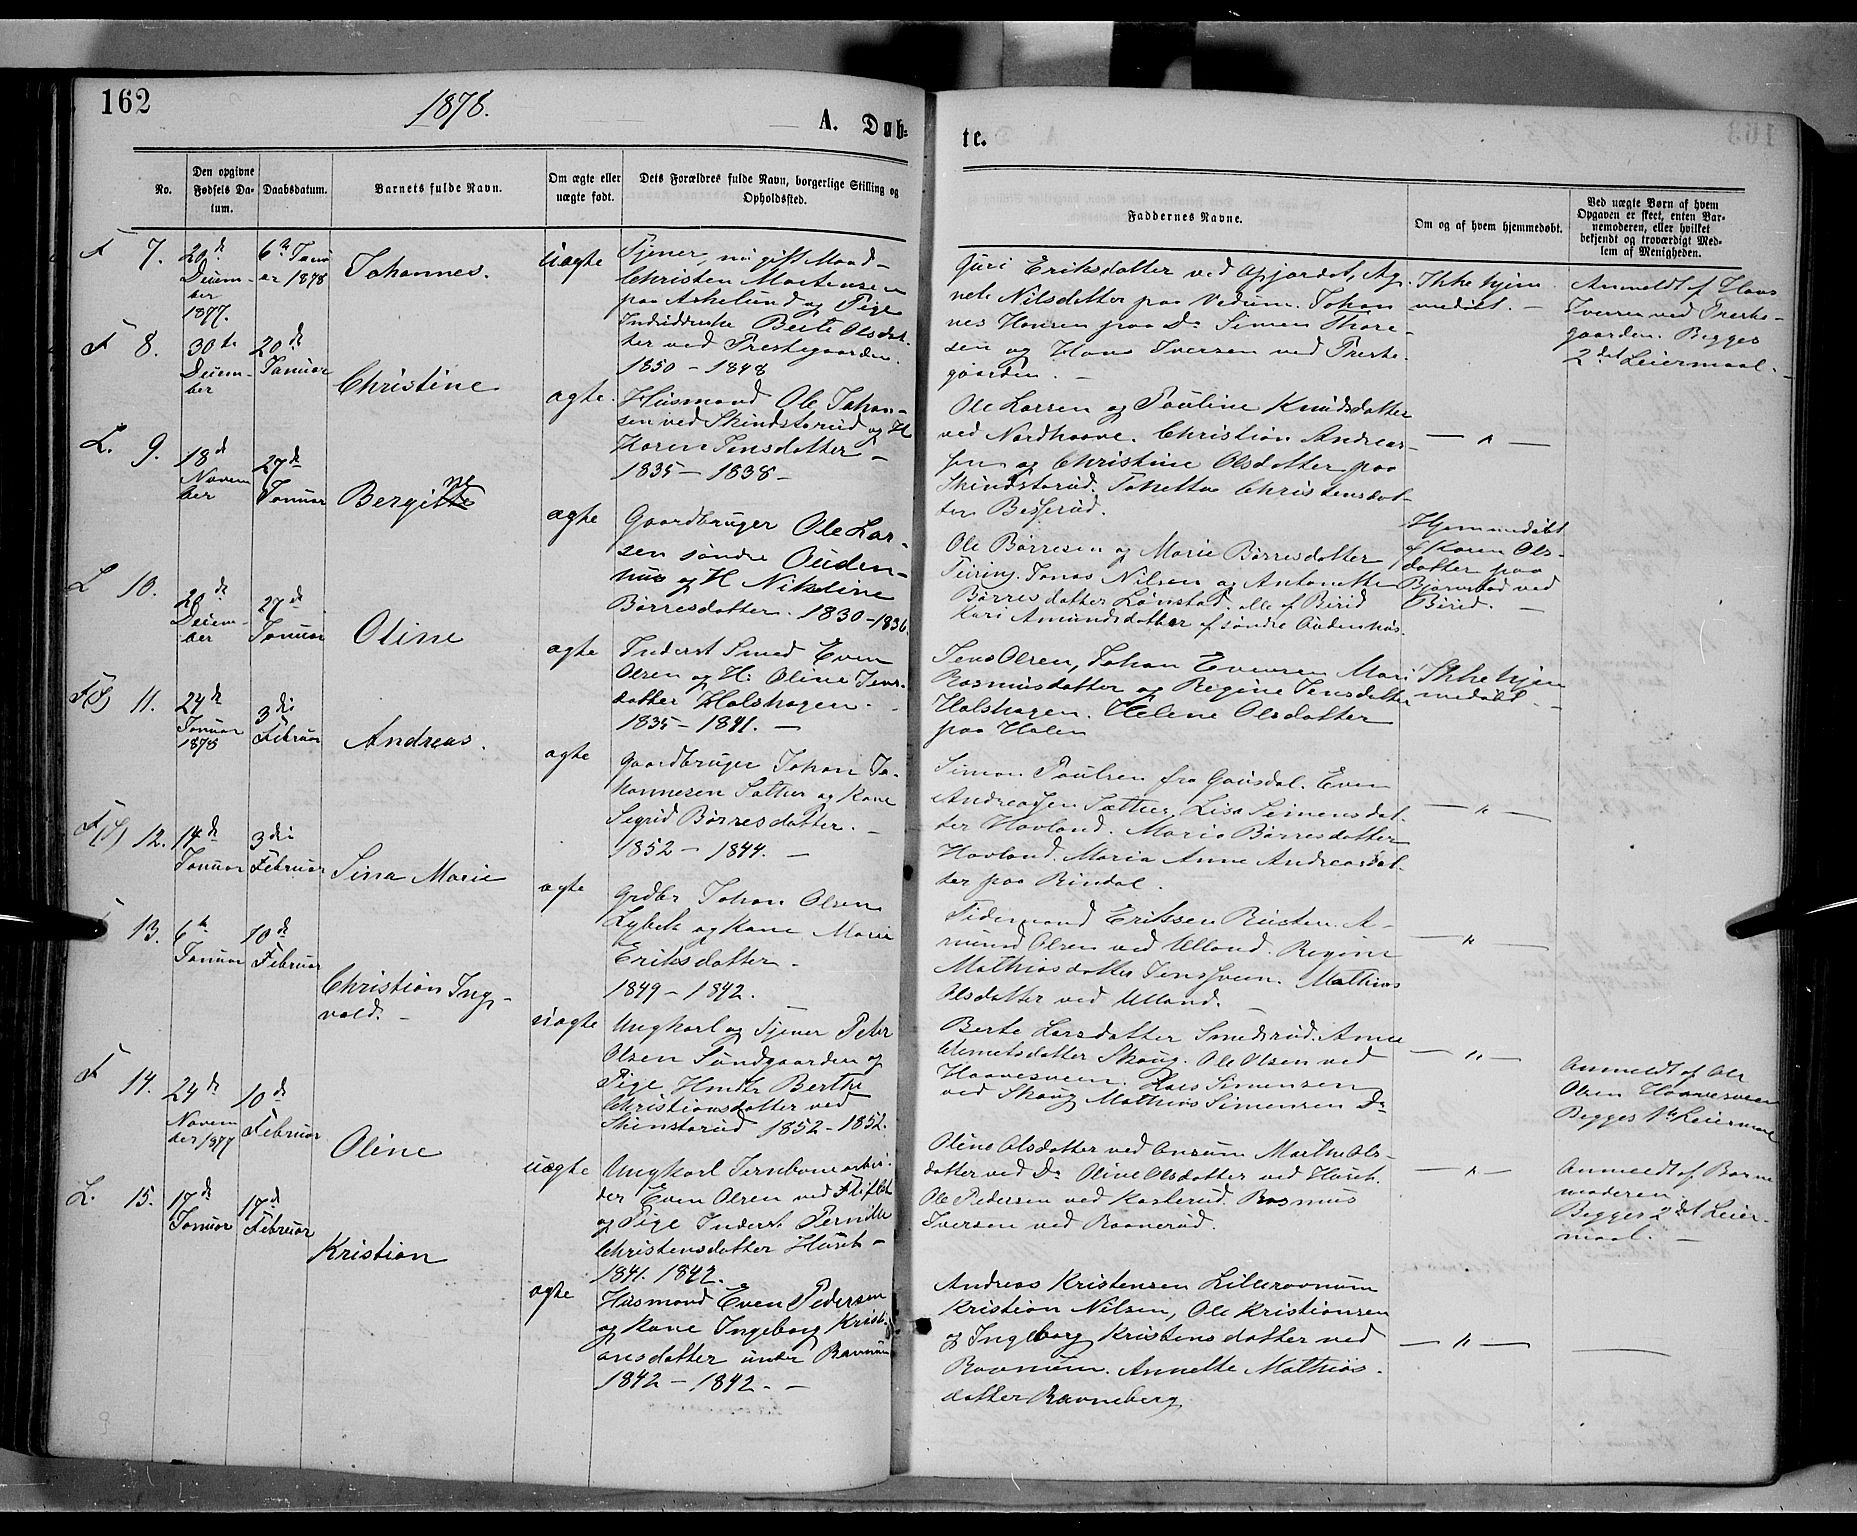 162
1878.
A. Døb-
te.
No.
Den opgivne Fødsels Da-tum.
Daabsdatum.
Barnets fulde Navn.
Om ægte eller uægte født.
Dets Forældres fulde Navn, borgerlige Stilling og Opholdssted.
Faddernes Navne.
Om og af hvem hjemmedøbt.
Ved uægte Børn af hvem Opgaven er skeet, enten Bar-nemoderen, eller hvilket bekjendt og troværdigt Med-lem af Menigheden.
F 7.
20de
Decem-
ber
1877.
6te Janu
ar 1878
Johannes.
uægte
Tjener, nu gift Mand
Christen Mortensen
paa Askelund og Pige
Berte Olsdat-
ter ved Prestegaarden.
1850 – 1848
Guri Eriksdatter ved Ag-
nete Nilsdatter paa Johan
nes Hansen paa Do Simen Thore-
sen og Hans Iversen ved Preste-
gaarden. –
Ikke hjem
medøbt. –
Anmeldt af Hans
Iversen ved Preste-
gaarden. Begges
2det Leiermaal. –
F 8.
30te
Decem-
ber
20de
Januar
Christine
ægte.
Husmand Ole Johan-
sen ved Skindstorud og H
Karen Jensdatter –
1835 – 1838 –
Ole Larsen og Pauline Knudsdatter
ved Nordhaave. Christian Andreas-
sen og Christine Olsdatter paa
Skindstorud. Tonetta Christensdat-
ter Besserud.
— " —
L. 9.
18de
Novem
ber
27de
Januar
Bergitte
ne
ægte
Gaardbruger Ole Lar-
sen søndre Ouden-
hus og H Nikoline
Børresdatter. 1830 – 1836
Ole Børresen og Marie Børresdatter
Jonas Nilsen og Antonette
Børresdatter Lønstad. alle af Birid
Kari Amundsdatter af søndre Oudenhus.
Hjemmedøbt
af Karen Ols-
datter paa
ved
Birid. –
L 10.
20de
Decem-
ber
27de
Januar
Oline
ægte
Inderst Smed Even
Olsen og H: Oline Jens-
datter Holshagen. –
1835 – 1841. –
Jens Olsen, Johan Evensen Mari
Rasmusdatter og Regine Jensdatter
Holshagen. Helene Olsdatter
paa Holen
Ikke hjem
medøbt –
F(S) 11.
24de
Januar
1878
3die
Februar
Andreas.
ægte
Gaardbruger Johan Jo-
hannesen Sæther og Kone
Sigrid Børresdatter. –
1852 – 1844. –
Simon Paulsen fra Gausdal. Even
Andreassen Sæther, Lisa Simensdat-
ter Havland. Maria Børresdatter
Havland. Maria Anne Andreasdat-
ter paa Rindal.
— " —
F(S) 12.
14de
Januar
3die
Februar
Sina Marie
ægte
Grdbr Johan Olsen
Lybek og Kone Marie
Eriksdatter –
1849 – 1842. –
Tidemand Eriksen Rusten. A-
mund Olsen ved Ulland. Regine
Mathiasdatter Jenssveen. Mathias
Olsdatter ved Ulland. –
— " —
13.
6te
Januar
10de
Februar
Christian Ing-
vald. –
uægte
Ungkarl og Tjener Peter
Olsen Sundgaarden og
Pige Berthe
Christiansdatter ved
Skinstorud 1852 – 1852.
Berte Larsdatter Smedsrud. Anne
Clemetsdatter Skoug. Ole Olsen ved
Haavesveen. Lars Simensen
ved Skoug Mathias Simensen Do
— " —
Anmeldt af Ole
Olsen Haavesveen
Begges 1ste Leiermaal
F 14.
24de
Novem
ber 1877
10de
Februar
Oline
uægte
Ungkarl Jernbanearbei-
der Even Olsen ved
og Pige Inderst Pernille
Christensdatter Huset –
1841. 1842.
Oline Olsdatter ved Onsum Marthe Ols-
datter ved Do Oline Olsdatter ved Huset.
Ole Pedersen ved Kasterud. Rasmus
Iversen ved Ravnerud.
— " —
Anmeldt af Barne
moderen
Begges 2det Leier-
maal. –
L. 15.
17de
Januar
17de
Februar
Kristian
ægte
Husmand Even Pedersen
og Kone Ingeborg Kristi-
ansdatter under Ravnum
1842 – 1842. –
Andreas Kristensen Lilleravnum
Kristian Nilsen, Ole Kristiansen
og Ingeborg Kristensdatter ved
Ravnum. Annette Mathias-
datter Ravneberg
— " —